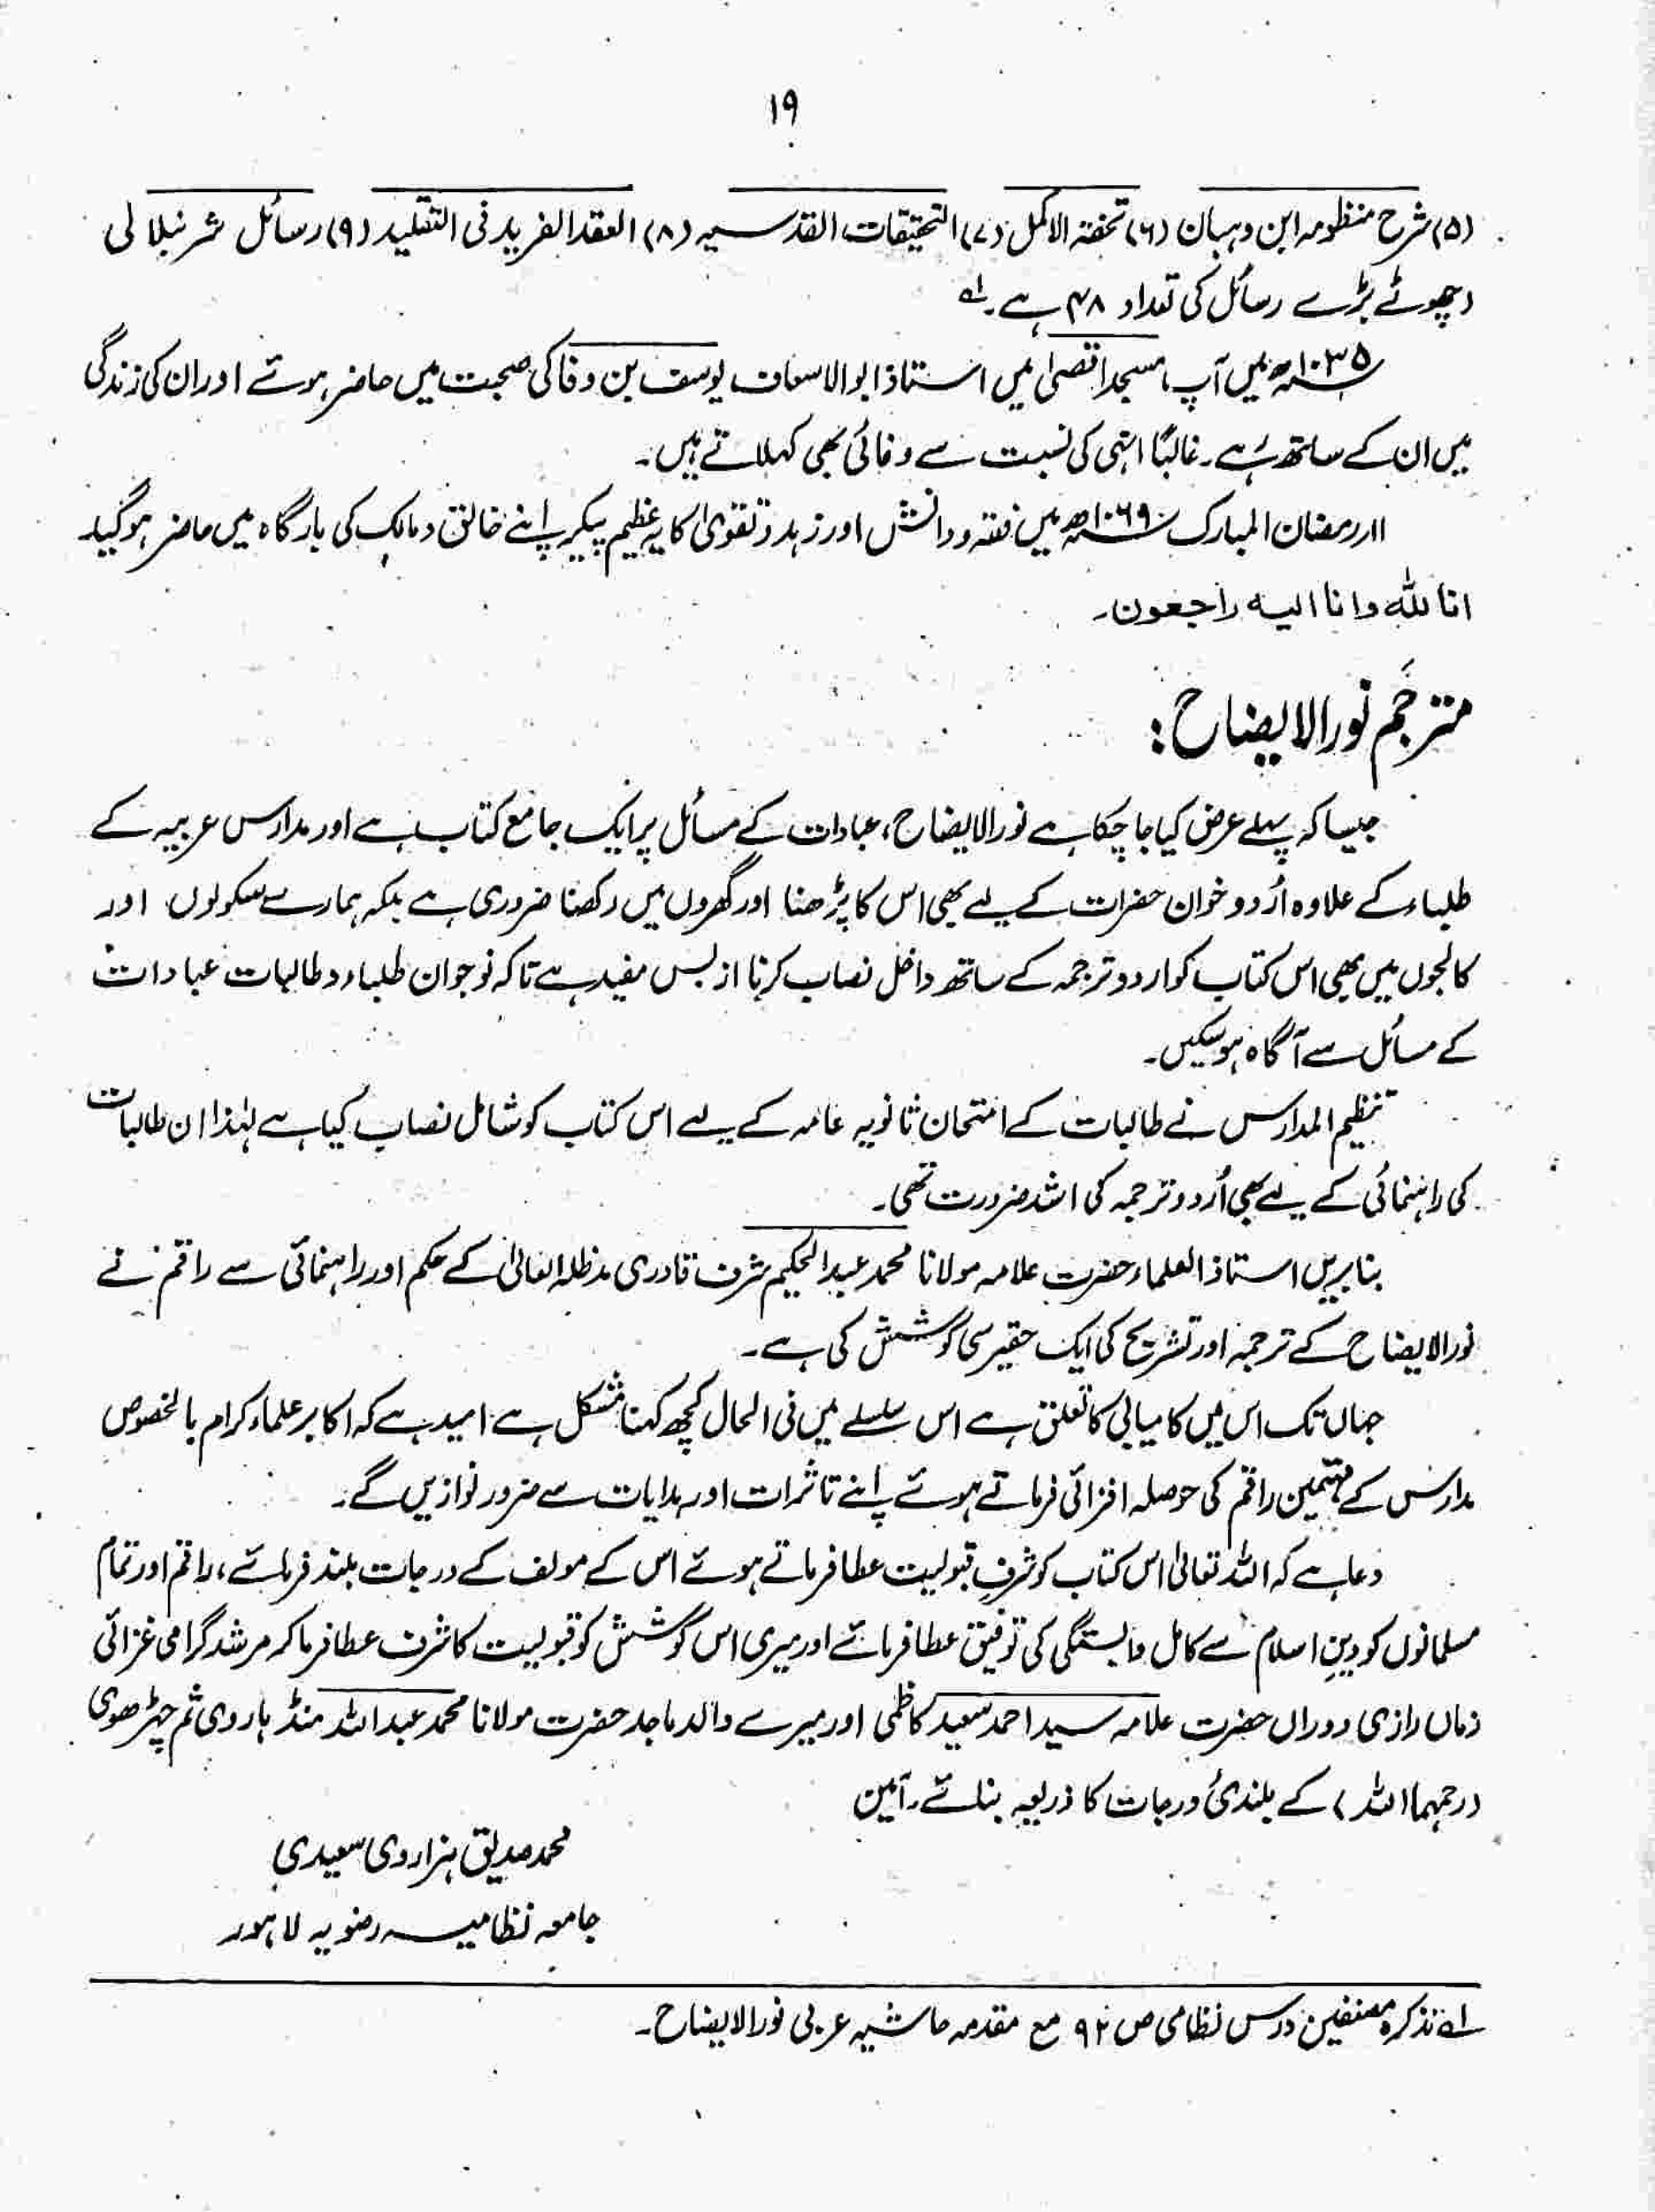 ۱۹
(۵) شرح منظومہ ابن وہبان (۶) تحفۃ الاکمل (۷) التحقیقات القدسیہ (۸) العقد الفرید فی التقلید (۹) رسائل شرنبلالی
(چھوٹے بڑے رسائل کی تعداد ۴۸ ہے۔ لہ
۱۰۳۵ھ میں آپ مسجد اقصیٰ میں استاذ ابوالاسعاف یوسف بن وفا کی صحبت میں حاضر ہوئے اور ان کی زندگی
میں ان کے ساتھ رہے۔ غالباً انہی کی نسبت سے وفائی بھی کہلاتے ہیں۔
۱۱ رمضان المبارک ۱۰۶۹ھ میں فقہ و دانش اور زہد و تقویٰ کا یہ عظیم پیکر اپنے خالق و مالک کی بارگاہ میں حاضر ہوگیا۔
انا للہ وانا الیہ راجعون۔
مترجَم نورالایضاح:
جیسا کہ پہلے عرض کیا جا چکا ہے نورالایضاح، عبادات کے مسائل پر ایک جامع کتاب ہے اور مدارس عربیہ کے
طلباء کے علاوہ اُردو خوان حضرات کے لیے بھی اس کا پڑھنا اور گھروں میں رکھنا ضروری ہے بلکہ ہمارے سکولوں اور
کالجوں میں بھی اس کتاب کو اردو ترجمہ کے ساتھ داخل نصاب کرنا از بس مفید ہے تاکہ نوجوان طلباء و طالبات عبادات
کے مسائل سے آگاہ ہوسکیں۔
تنظیم المدارس نے طالبات کے امتحان ثانویہ عامہ کے لیے اس کتاب کو شامل نصاب کیا ہے لہٰذا ان طالبات
کی راہنمائی کے لیے بھی اُردو ترجمہ کی اشد ضرورت تھی۔
بنابریں استاذ العلماء حضرت علامہ مولانا محمد عبدالحکیم شرف قادری مدظلہ العالیٰ کے حکم اور راہنمائی سے راقم نے
نورالایضاح کے ترجمہ اور تشریح کی ایک حقیر سی کوشش کی ہے۔
جہاں تک اس میں کامیابی کا تعلق ہے اس سلسلے میں فی الحال کچھ کہنا مشکل ہے امید ہے کہ اکابر علماء کرام بالخصوص
مدارس کے مہتممین راقم کی حوصلہ افزائی فرماتے ہوئے اپنے تاثرات اور ہدایات سے ضرور نوازیں گے۔
دعا ہے کہ اللہ تعالیٰ اس کتاب کو شرفِ قبولیت عطا فرماتے ہوئے اس کے مولف کے درجات بلند فرمائے، راقم اور تمام
مسلمانوں کو دینِ اسلام سے کامل وابستگی کی توفیق عطا فرمائے اور میری اس کوشش کو قبولیت کا شرف عطا فرما کر مرشد گرامی غزالی
زماں رازی دوراں حضرت علامہ سید احمد سعید کاظمی اور میرے والد ماجد حضرت مولانا محمد عبداللہ منڈہاروی ثم چہڑھوی
(رحمہما اللہ) کے بلندیٔ درجات کا ذریعہ بنائے۔ آمین
محمد صدیق ہزاروی سعیدی
جامعہ نظامیہ رضویہ لاہور
لہ تذکرہ مصنفین درس نظامی ص ۹۲ مع مقدمہ حاشیہ عربی نورالایضاح۔